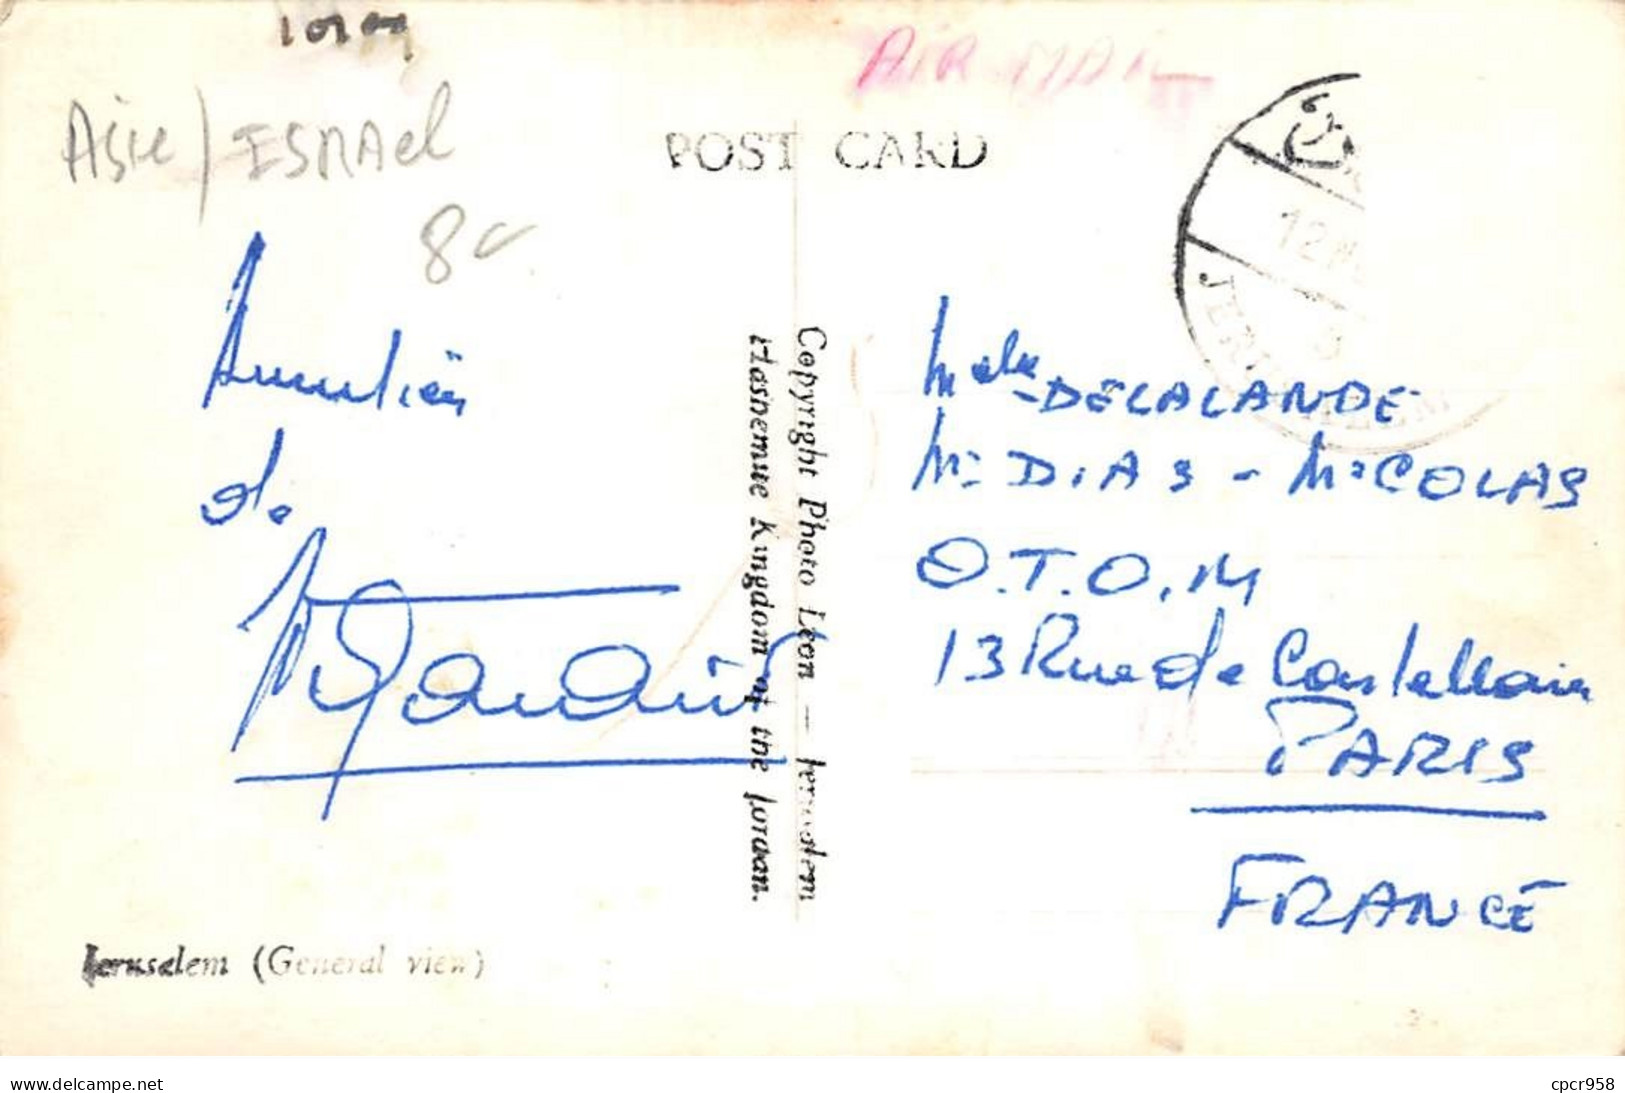 AIR MAIL
Asie / ISRAel
POST CARD
8
12
JERUSALEM
de
Melle DELALANDE
Mr DIAS - Mr COLAS
O.T.O.M
13 Rue de Castellane
PARIS
FRANCE
Copyright Photo Leon — Jerusalem
Hashemite Kingdom of the Jordan.
Jerusalem (General view)
www.delcampe.net
cpcr958